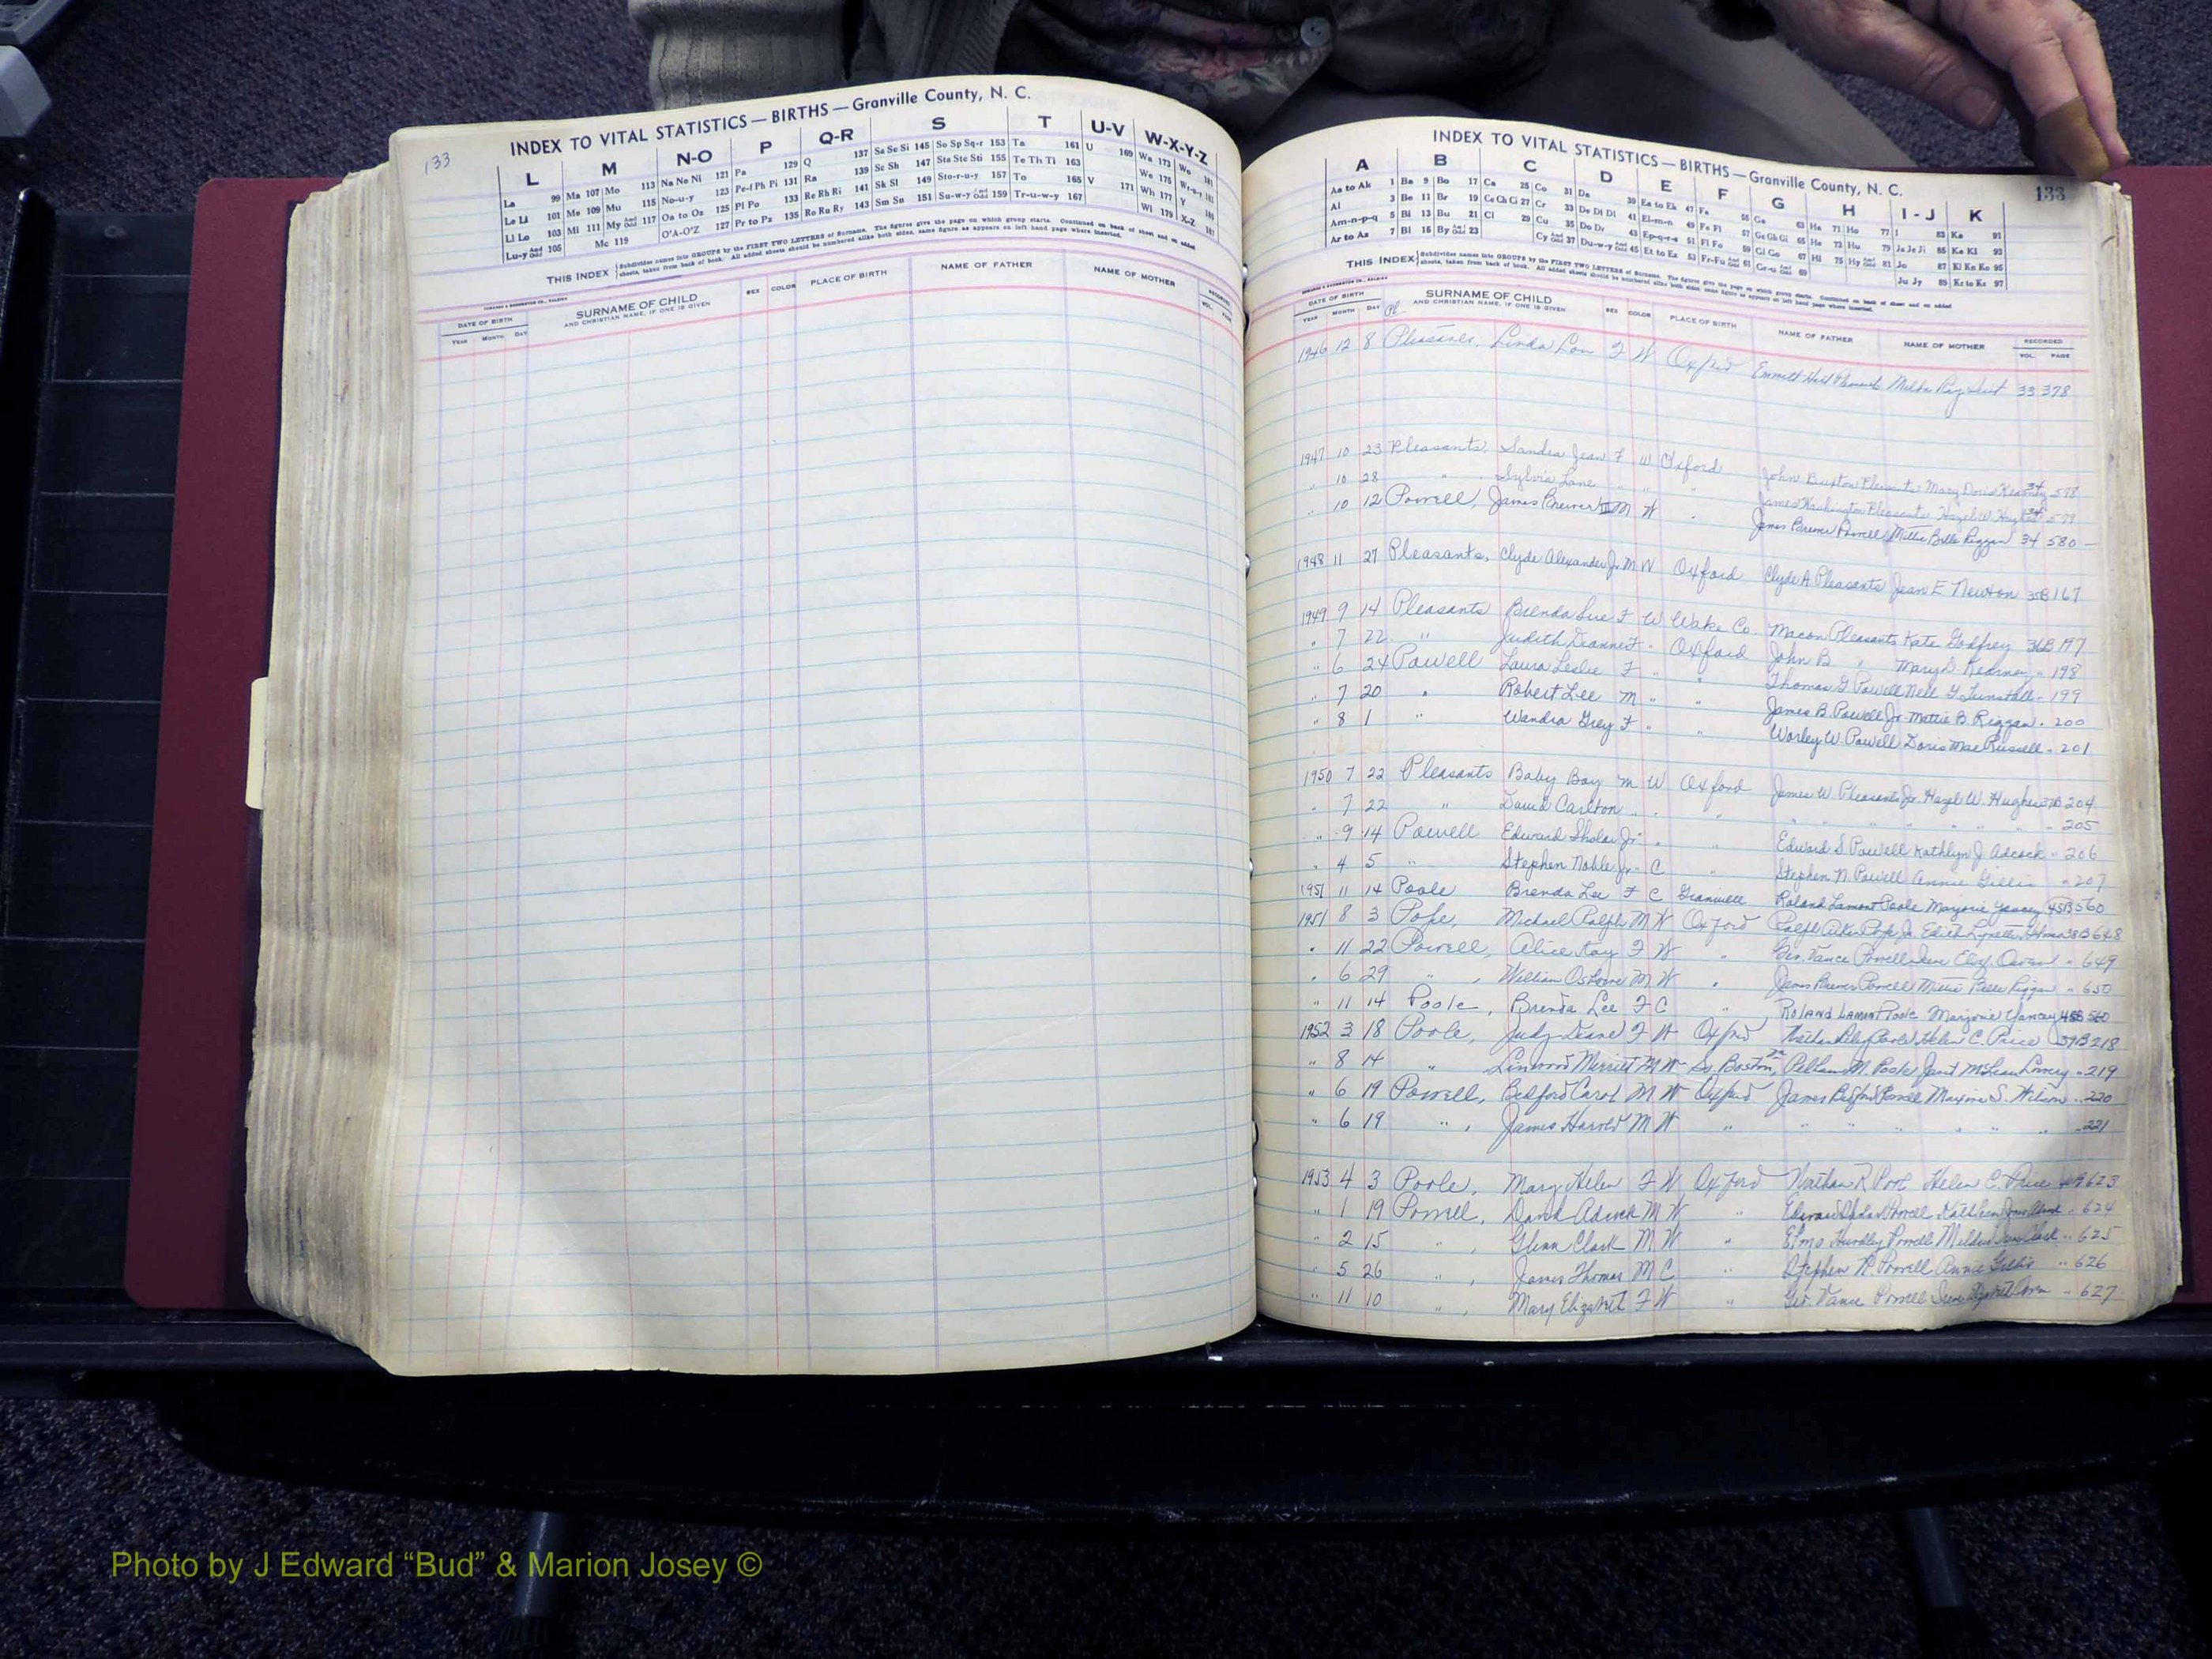 133
INDEX TO VITAL STATISTICS — BIRTHS — Granville County, N. C.
L M N-O P Q-R S T U-V W-X-Y-Z
La 99 Ma 107 Mo 113 Na Ne Ni 121 Pa 129 Q 137 Sa Se Si 145 So Sp Sq-r 153 Ta 161 U 169 Wa 173 Wo 181
Le Li 101 Me 109 Mu 115 No-u-y 123 Pe-f Ph Pi 131 Ra 139 Sc Sh 147 Sta Ste Sti 155 Te Th Ti 163 We 175 Wr-u-y 183
Ll Lo 103 Mi 111 My And Odd 117 Oa to Oz 125 Pl Po 133 Re Rh Ri 141 Sk Sl 149 Sto-r-u-y 157 To 165 V 171 Wh 177 Y 185
Lu-y And Odd 105 Mc 119 O'A-O'Z 127 Pr to Pz 135 Ro Ru Ry 143 Sm Sn 151 Su-w-y And Odd 159 Tr-u-w-y 167 Wi 179 X-Z 187
THIS INDEX Subdivides names into GROUPS by the FIRST TWO LETTERS of Surname. The figures give the page on which group starts. Continued on back of sheet and on added
sheets, taken from back of book. All added sheets should be numbered alike both sides, same figure as appears on left hand page where inserted.
DATE OF BIRTH SURNAME OF CHILD SEX COLOR PLACE OF BIRTH NAME OF FATHER NAME OF MOTHER RECORDED
YEAR MONTH DAY AND CHRISTIAN NAME, IF ONE IS GIVEN VOL. PAGE
INDEX TO VITAL STATISTICS — BIRTHS — Granville County, N. C.
133
A B C D E F G H I - J K
Aa to Ak 1 Ba 9 Bo 17 Ca 25 Co 31 Da 39 Ea to Ek 47 Fa 55 Ga 63 Ha 71 Ho 77 I 83 Ka 91
Al 3 Be 11 Br 19 Ce Ch Ci 27 Cr 33 De Di Dl 41 El-m-n 49 Fe Fi 57 Ge Gh Gi 65 He 73 Hu 79 Ja Je Ji 85 Ke Kl 93
Am-n-p-q 5 Bi 13 Bu 21 Cl 29 Cu 35 Do Dr 43 Ep-q-r-s 51 Fl Fo 59 Gl Go 67 Hi 75 Hy And Odd 81 Jo 87 Ki Kn Ko 95
Ar to Az 7 Bl 15 By And Odd 23 Cy And Odd 37 Du-w-y And Odd 45 Et to Ez 53 Fr-Fu And Odd 61 Gr-u And Odd 69 Ju Jy 89 Kr to Kz 97
THIS INDEX Subdivides names into GROUPS by the FIRST TWO LETTERS of Surname. The figures give the page on which group starts. Continued on back of sheet and on added
sheets, taken from back of book. All added sheets should be numbered alike both sides, same figure as appears on left hand page where inserted.
DATE OF BIRTH SURNAME OF CHILD SEX COLOR PLACE OF BIRTH NAME OF FATHER NAME OF MOTHER RECORDED
YEAR MONTH DAY Pl AND CHRISTIAN NAME, IF ONE IS GIVEN VOL. PAGE
1946 12 8 Pleasants, Linda Lou F W Oxford Emmett 33 378
1947 10 23 Pleasants, Sandra Jean F W Oxford John Buxton Pleasants Mary Doris Kearney 34 578
" 10 28 " Sylvia Lane " " " James Washington Pleasants Hazel W. Hughes 34 579
" 10 12 Powell, James Brewer III M W " James Brewer Powell Mittie Belle Riggan 34 580
1948 11 27 Pleasants, Clyde Alexander Jr. M W Oxford Clyde A. Pleasants Jean E Newton 35B 167
1949 9 14 Pleasants Brenda Sue F W Wake Co. Macon Pleasants Kate Godfrey 36B 197
" 7 22 " Judith Dianne F " Oxford John B " Mary D. Kearney " 198
" 6 24 Powell Laura Leslie F " " Thomas G. Powell Nell Y. Tunstall " 199
" 7 20 " Robert Lee M " " James B. Powell Jr. Mattie B. Riggan " 200
" 8 1 " Wandra Grey F " " Worley W. Powell Doris Mae Russell " 201
1950 7 22 Pleasants Baby Boy M W Oxford James W. Pleasants Jr. Hazel W. Hughes 204
" 7 22 " David Carlton " " " " " " " 205
" 9 14 Powell Edward Sholar Jr. " " Edward S Powell Kathlyn J. Adcock " 206
" 4 5 " Stephen Noble Jr. C " Stephen N. Powell Annie Gillis " 207
1951 11 14 Poole Brenda Lee F C Granville Roland Lamont Poole Marjorie Yancey 45B 560
1951 8 3 Pope, Michael Ralph M W Oxford Ralph Pope Jr. Edith 38B 648
" 11 22 Powell, Alice Kay F W " Geo. Vance Powell " 649
" 6 29 " , William Osborne M W " James Brewer Powell Mittie Belle Riggan " 650
" 11 14 Poole, Brenda Lee F C " Roland Lamont Poole Marjorie Yancey 45B 560
1952 3 18 Poole, Judy Diane F W Oxford Nathan Poole Helen C. Price 39B 218
" 8 14 " Linwood Merritt M W So. Boston, Va. Pelham M. Poole Janet McLean Lowery " 219
" 6 19 Powell, Bedford Carol M W Oxford James Bedford Powell Maxine S. Wilson " 220
" 6 19 " , James Harold M W " " " " " " " 221
1953 4 3 Poole, Mary Helen F W Oxford Nathan R Pool Helen C. Price 623
" 1 19 Powell, David Adcock M W " Edward Sholar Powell Kathleen " 624
" 2 15 " , Glenn Clark M W " Elmo Hundley Powell Mildred Clark " 625
" 5 26 " , James Thomas M C " Stephen N. Powell Annie Gillis " 626
" 11 10 " , Mary Elizabeth F W " Geo. Vance Powell " 627
Photo by J Edward “Bud” & Marion Josey ©